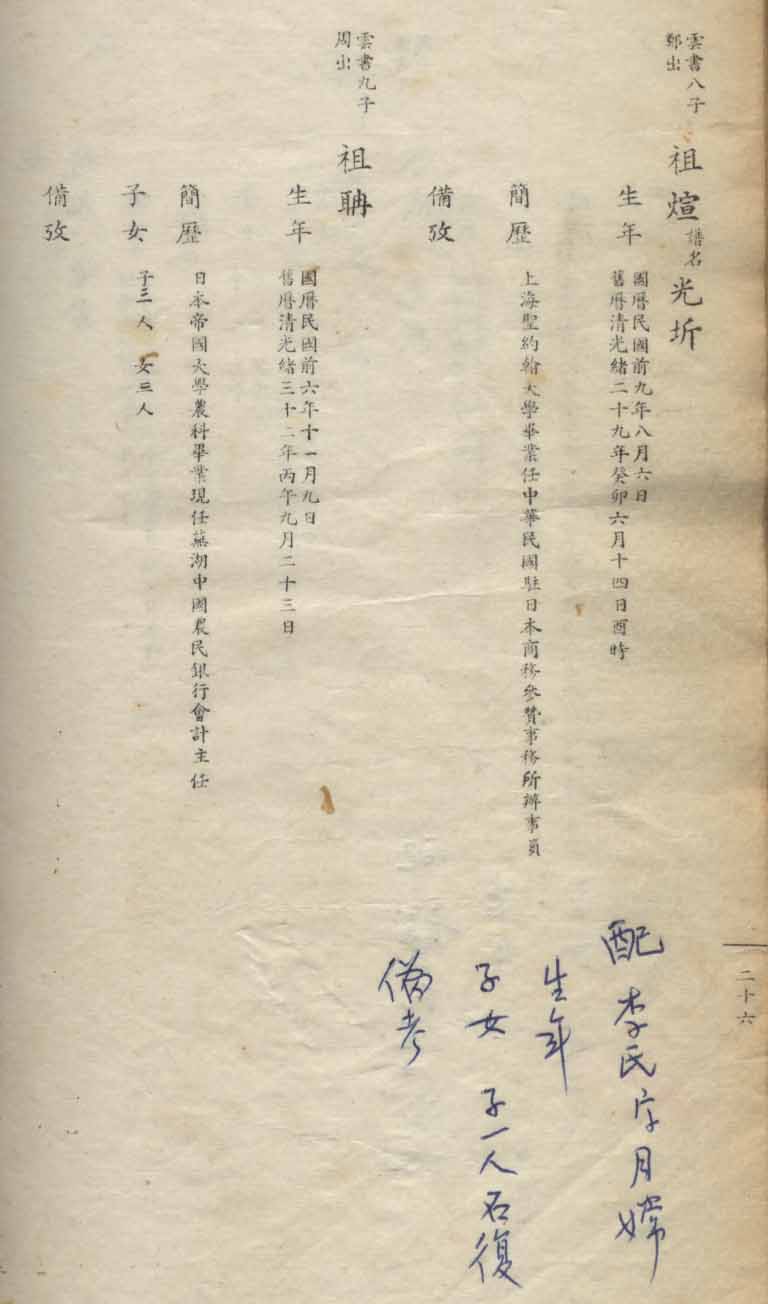 雲書八子
鄭出
祖煊 譜名 光圻
生年
國曆民國前九年八月六日
舊曆清光緒二十九年癸卯六月十四日酉時
簡歷
上海聖約翰大學畢業任中華民國駐日本商務參贊事務所辦事員
備攷
配 李氏字月嫦
生年
子女 子一人名復
俻考
雲書九子
周出
祖聃
生年
國曆民國前六年十一月九日
舊曆清光緒三十二年丙午九月二十三日
簡歷
日本帝國大學農科畢業現任蕪湖中國農民銀行會計主任
子女
子三人 女三人
備攷
二十六